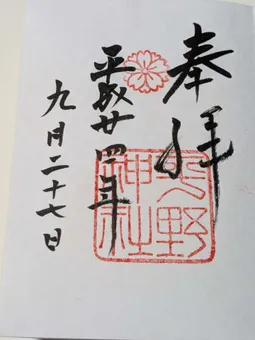 奉拝
野
神社
平成廿四年
九月二十七日